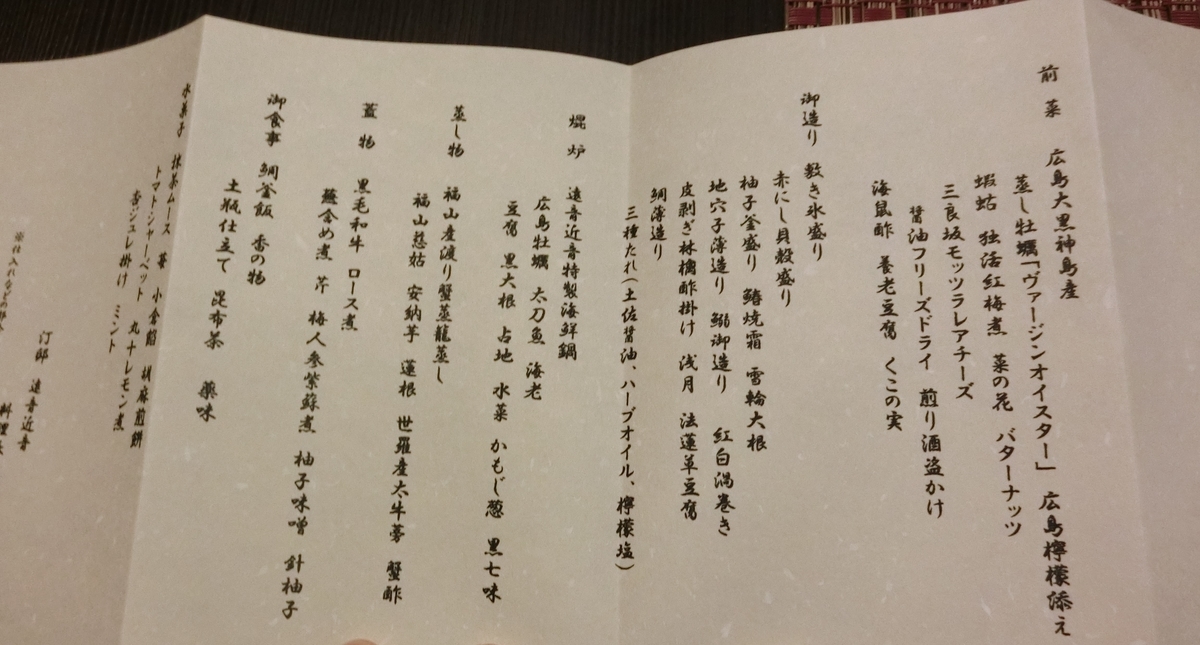 前菜 広島大黒神島産
蒸し牡蠣「ヴァージンオイスター」 広島檸檬添え
蝦蛄 独活紅梅煮 菜の花 バターナッツ
三良坂モッツラレアチーズ
醤油フリーズドライ 煎り酒盗かけ
海鼠酢 養老豆腐 くこの実
御造り 敷き氷盛り
赤にし貝殻盛り
柚子釜盛り 鰆焼霜 雪輪大根
地穴子薄造り 鰯御造り 紅白渦巻き
皮剥ぎ林檎酢掛け 浅月 法蓮草豆腐
鯛薄造り
三種たれ(土佐醤油、ハーブオイル、檸檬塩)
焜炉 遠音近音特製海鮮鍋
広島牡蠣 太刀魚 海老
豆腐 黒大根 占地 水菜 かもじ葱 黒七味
蒸し物 福山産渡り蟹蒸籠蒸し
福山慈姑 安納芋 蓮根 世羅産太牛蒡 蟹酢
蓋物 黒毛和牛 ロース煮
蕪含め煮 芹 梅人参紫蘇煮 柚子味噌 針柚子
御食事 鯛釜飯 香の物
土瓶仕立て 昆布茶 薬味
水菓子 抹茶ムース 苺 小倉餡 胡麻煎餅
トマトシャーベット 丸十レモン煮
杏ジュレ掛け ミント
汀邸 遠音近音
料理長